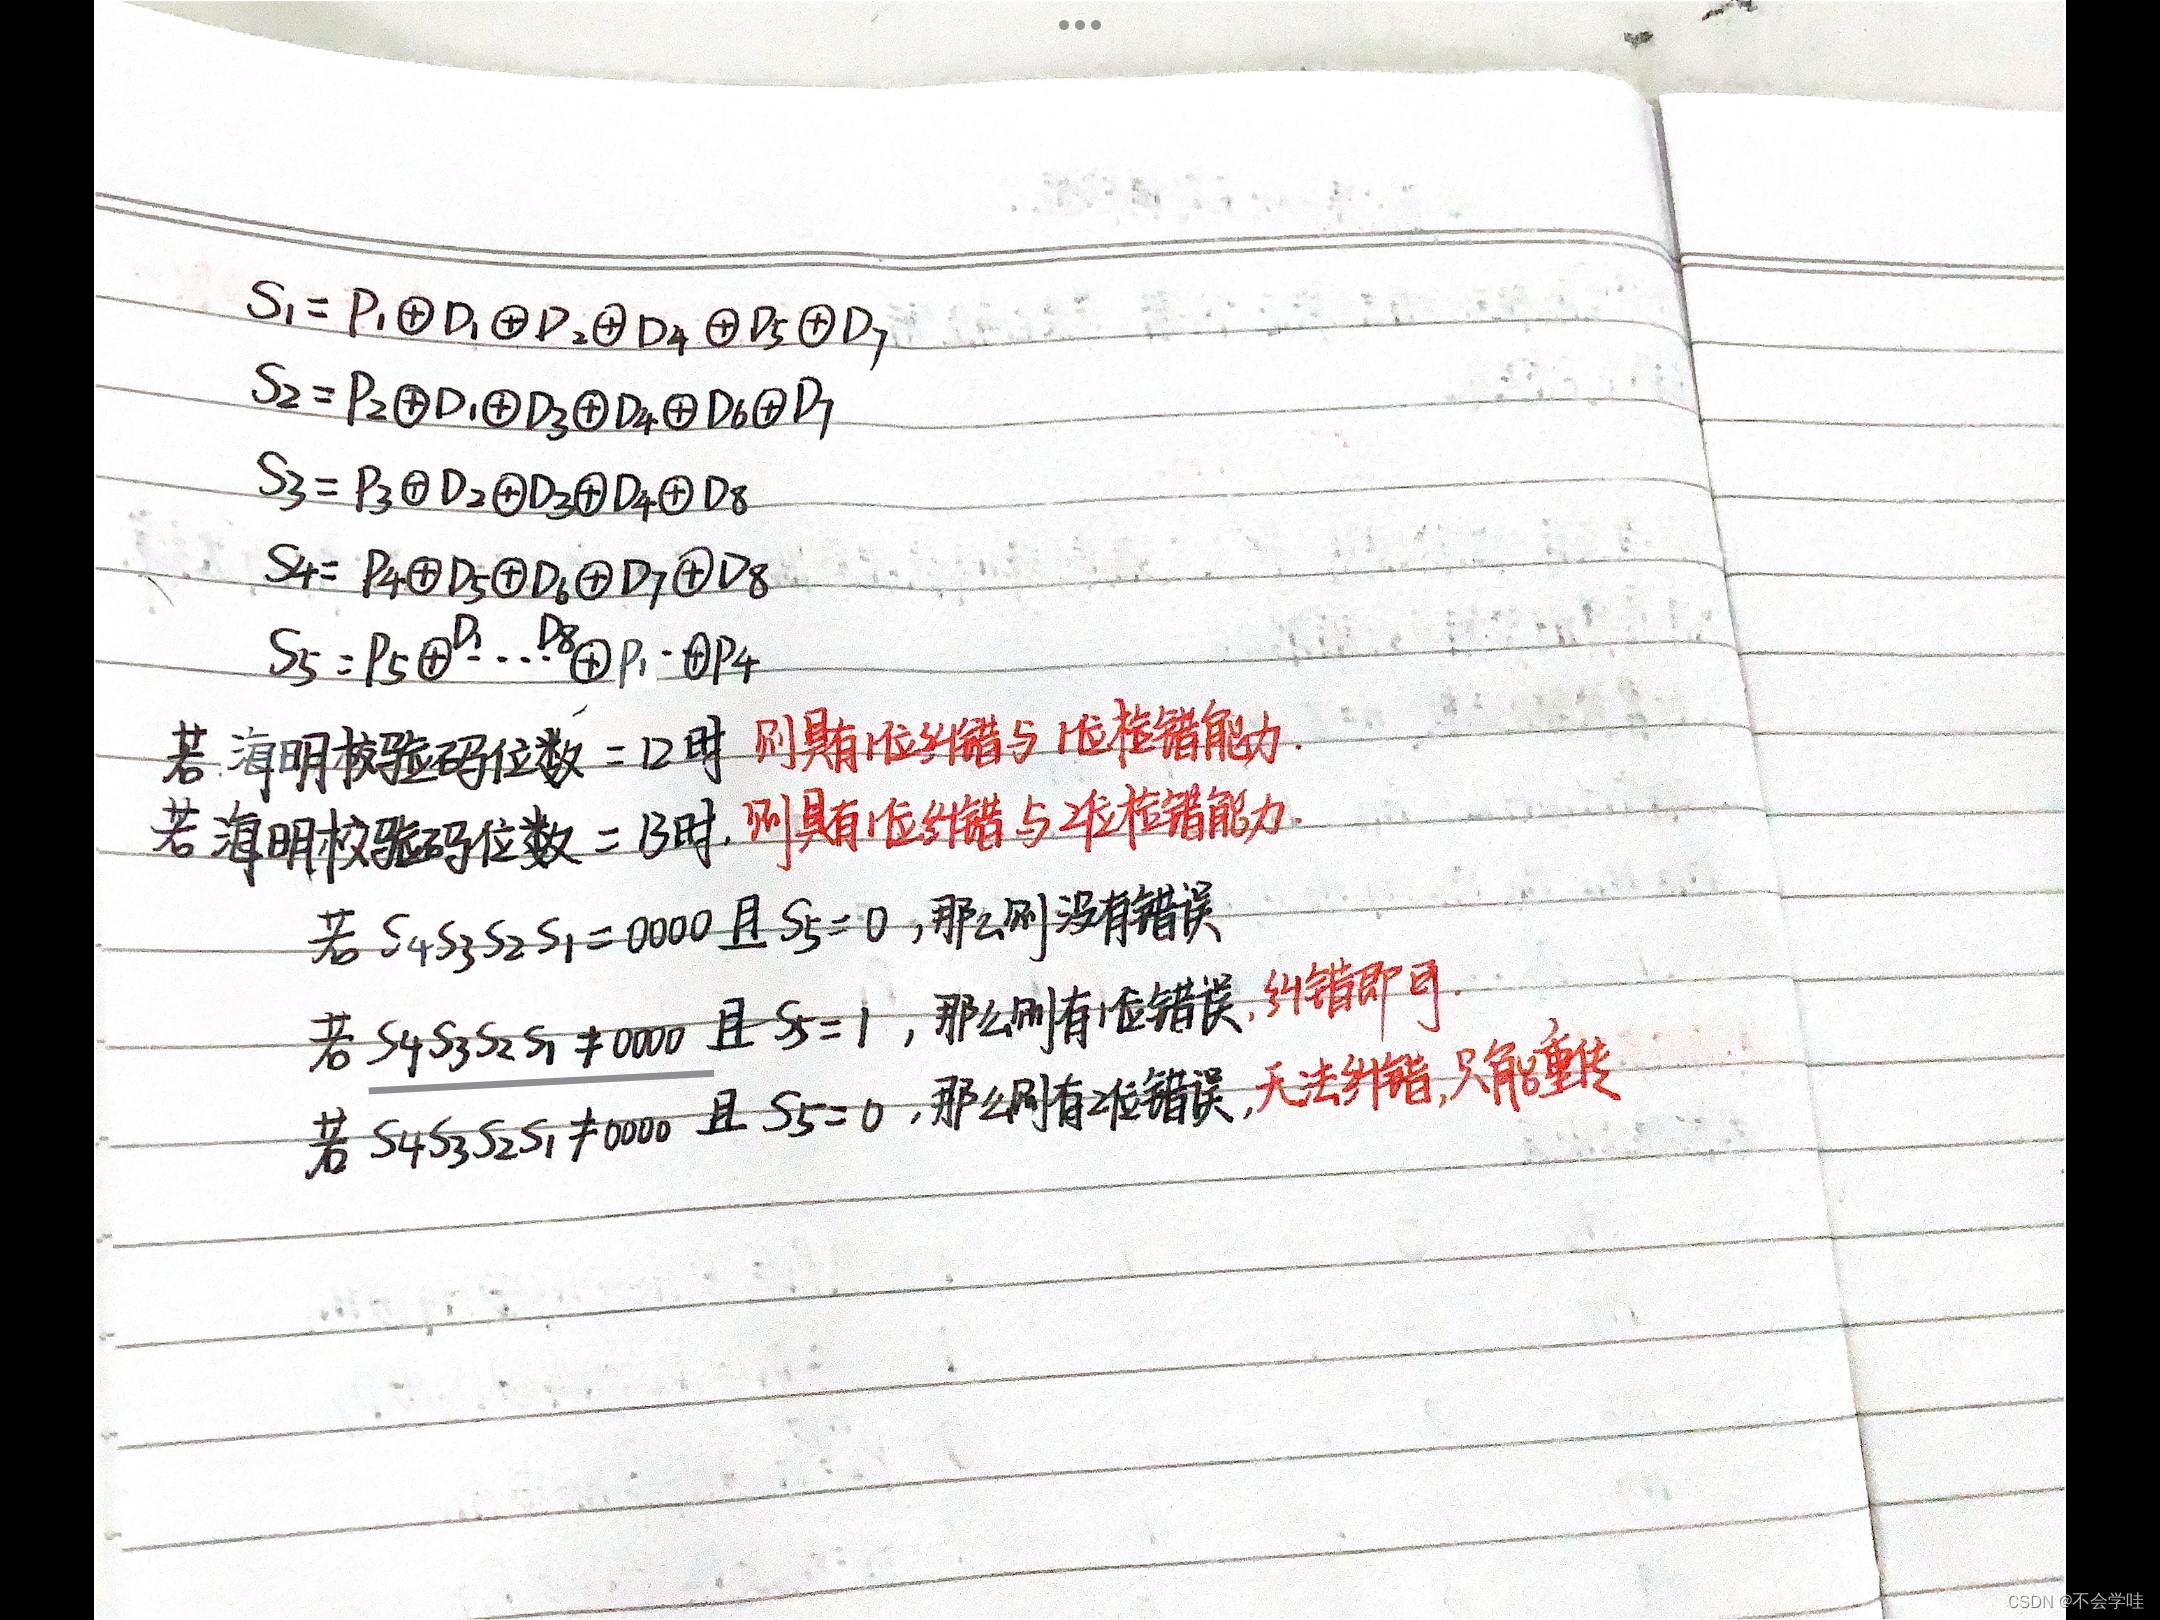 S₁=P₁⊕D₁⊕D₂⊕D₄⊕D₅⊕D₇
S₂=P₂⊕D₁⊕D₃⊕D₄⊕D₆⊕D₇
S₃=P₃⊕D₂⊕D₃⊕D₄⊕D₈
S₄=P₄⊕D₅⊕D₆⊕D₇⊕D₈
S₅=P₅⊕D₁....D₈⊕P₁··⊕P₄
若海明校验码位数=12时 则具有1位纠错与1位检错能力.
若海明校验码位数=13时.则具有1位纠错与2位检错能力.
若S₄S₃S₂S₁=0000且S₅=0,那么则没有错误
若S₄S₃S₂S₁≠0000且S₅=1,那么则有1位错误,纠错即可.
若S₄S₃S₂S₁≠0000且S₅=0,那么则有2位错误,无法纠错,只能重传
CSDN @不会学哇